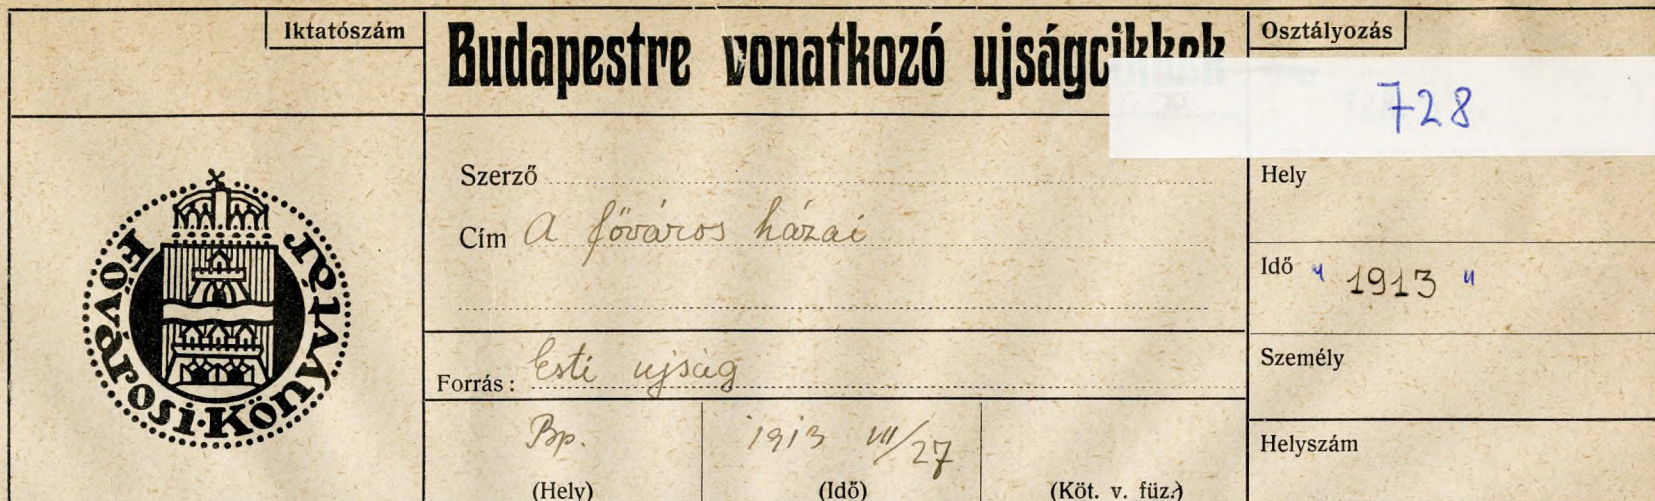 Iktatószám
Budapestre vonatkozó ujságcikkek
Osztályozás
728
Fővárosi·Könyvtár
Szerző
Cím A főváros házai
Forrás: Esti ujság
Bp. 1913 VII/27
(Hely) (Idő) (Köt. v. füz.)
Hely
Idő " 1913 "
Személy
Helyszám